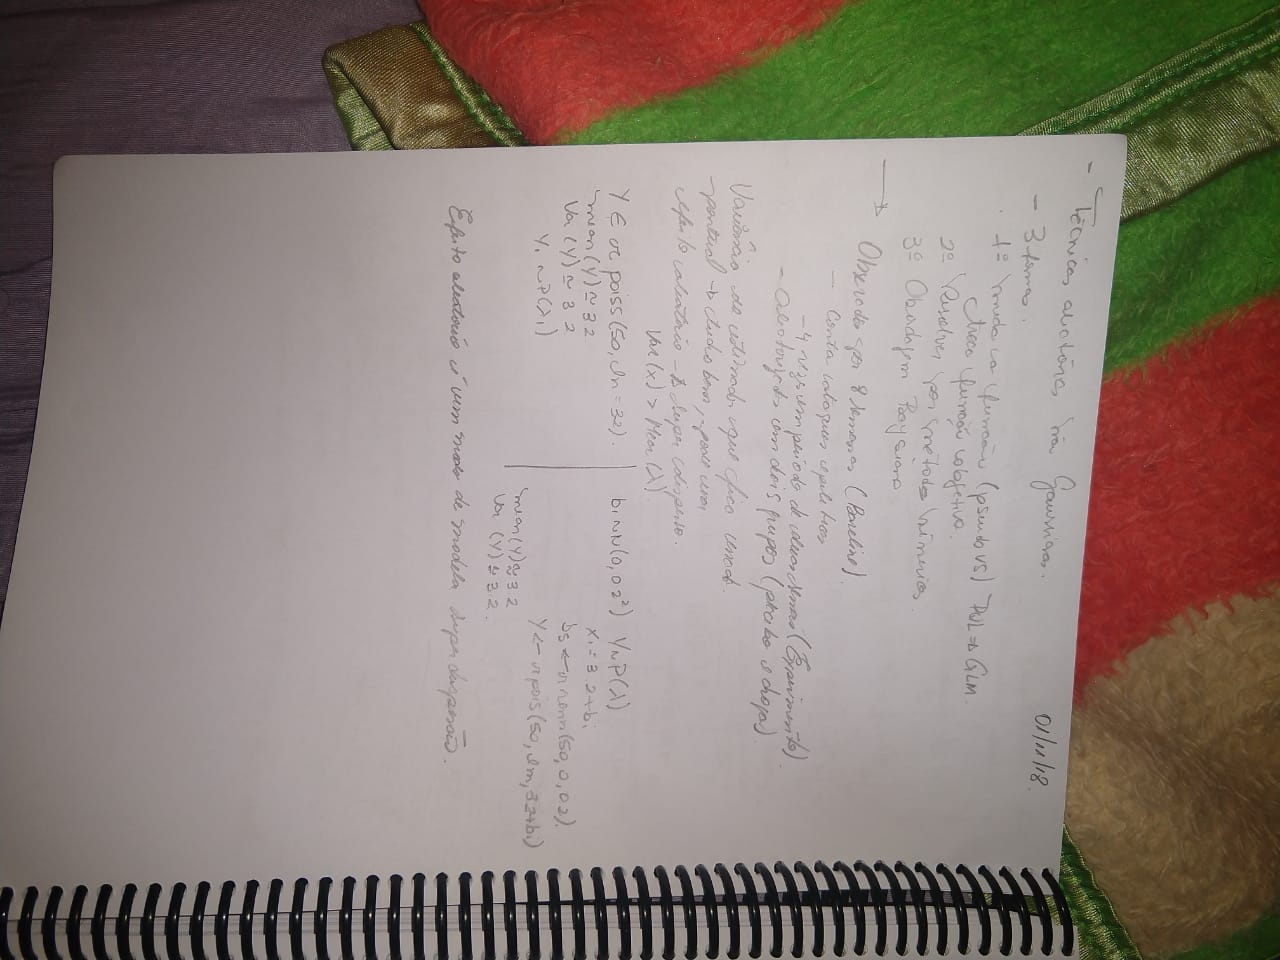 - Técnicas aleatórias não Gaussianas.
01/11/18.
- 3 formas.
1º muda a função (pseudo VS) PQL => GLM.
troca função objetivo.
2º Resolver por métodos numéricos.
3º Abordagem Baysiana
→ Observados por 8 semanas (Baseline).
- Conta ataques epileticos
- 4 vezes em período de duas semanas (Experimento).
- Aleatorizados em dois grupos (placebo e droga).
Variância do estimador que fica errado.
pontual → tudo bem, pode usar
efeito aleatório → super disperso.
Var(x) > Mean(λ)
Y ∈ rpoiss(50, lm = 32).
mean(Y) ≈ 3.2
Var(Y) ≈ 3.2
Yi ~ P(λi)
bi ~ N(0, 0.2²) Y ~ P(λ)
xi = 3.2 + bi
bs ← rnorm(50, 0, 0.2).
Y ← rpois(50, lm, 3.2+bi)
mean(Y) ≈ 3.2
Var(Y) ≈ 3.2.
Efeito aleatório é um modo de modela superdispersão.